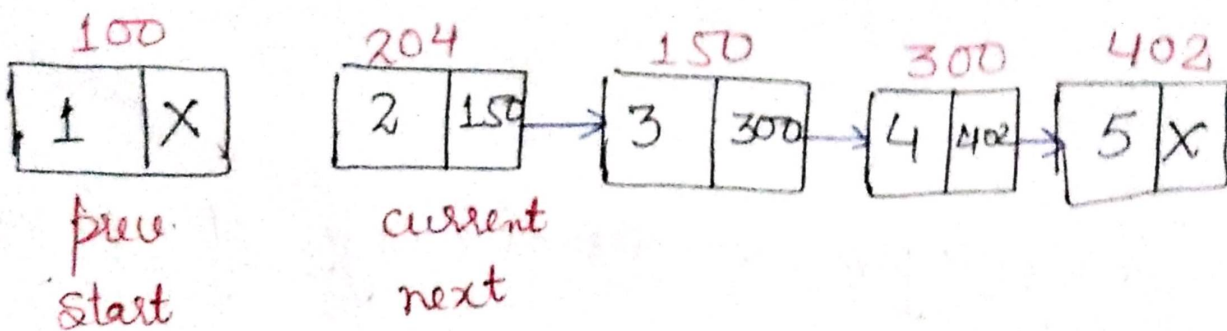 100 204 150 300 402
1 X 2 150 3 300 4 402 5 X
prev. current
start next